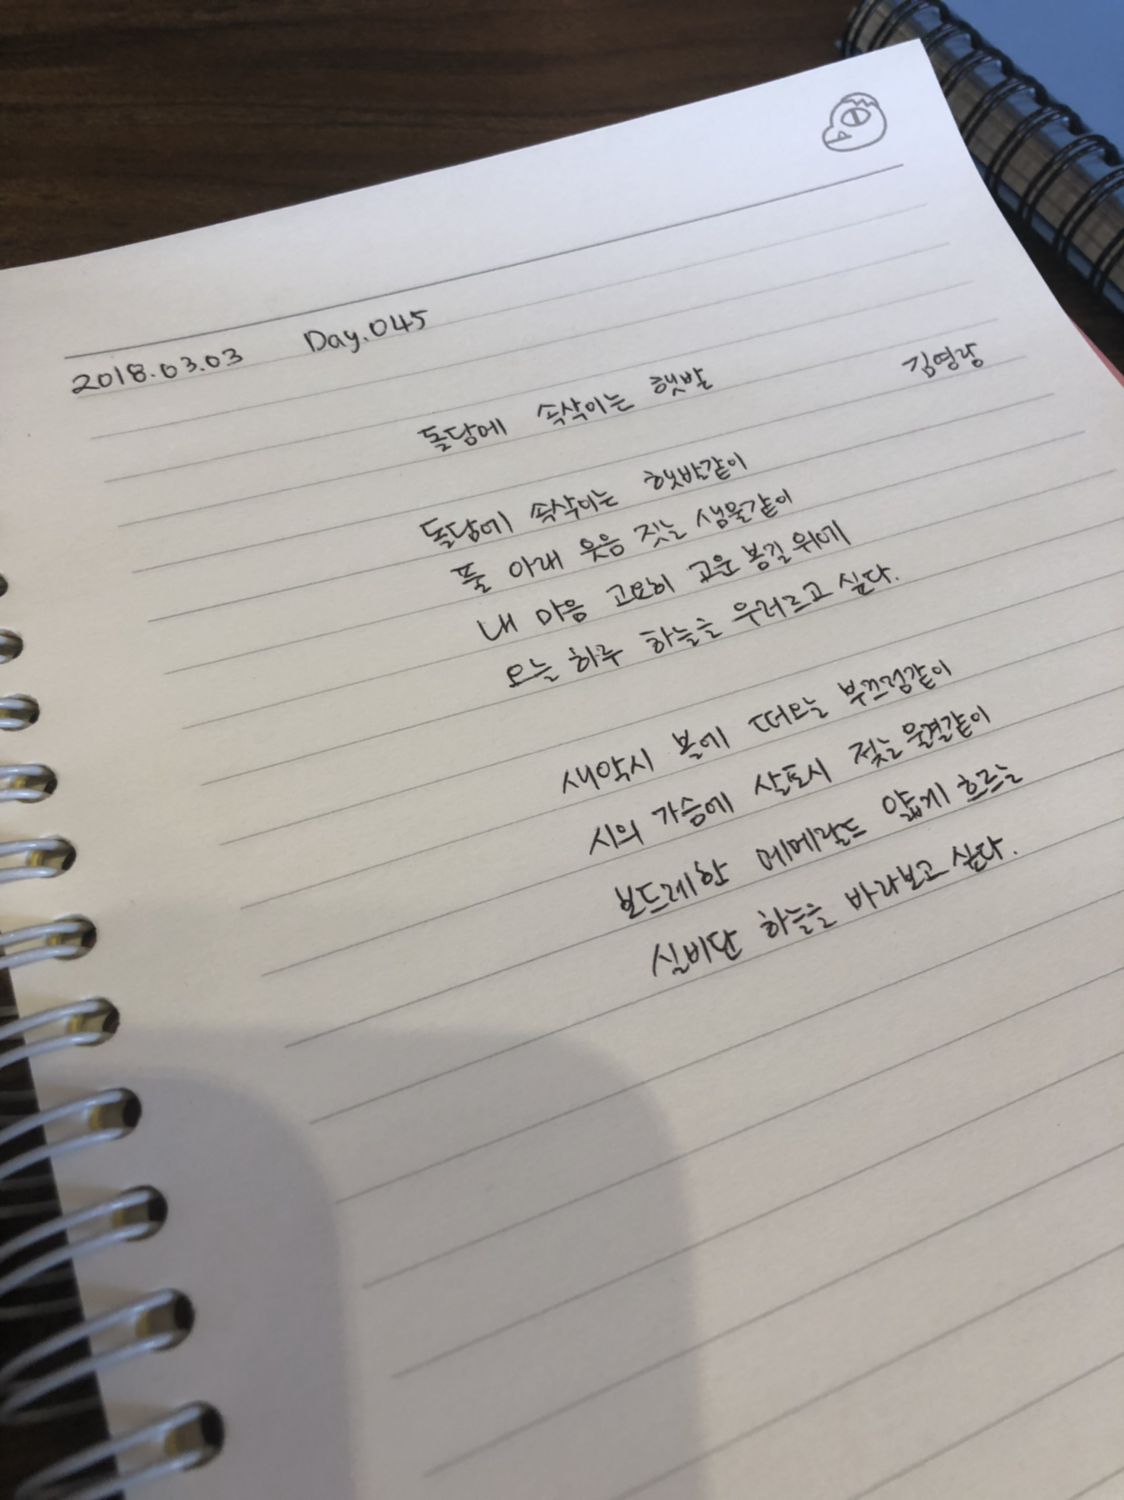 2018.03.03 Day.045
돌담에 속삭이는 햇발 김영랑
돌담에 속삭이는 햇발같이
풀 아래 웃음 짓는 샘물같이
내 마음 고요히 고운 봄길 위에
오늘 하루 하늘을 우러르고 싶다.
새악시 볼에 떠오는 부끄럼같이
시의 가슴에 살포시 젖는 물결같이
보드레한 에메랄드 얇게 흐르는
실비단 하늘을 바라보고 싶다.